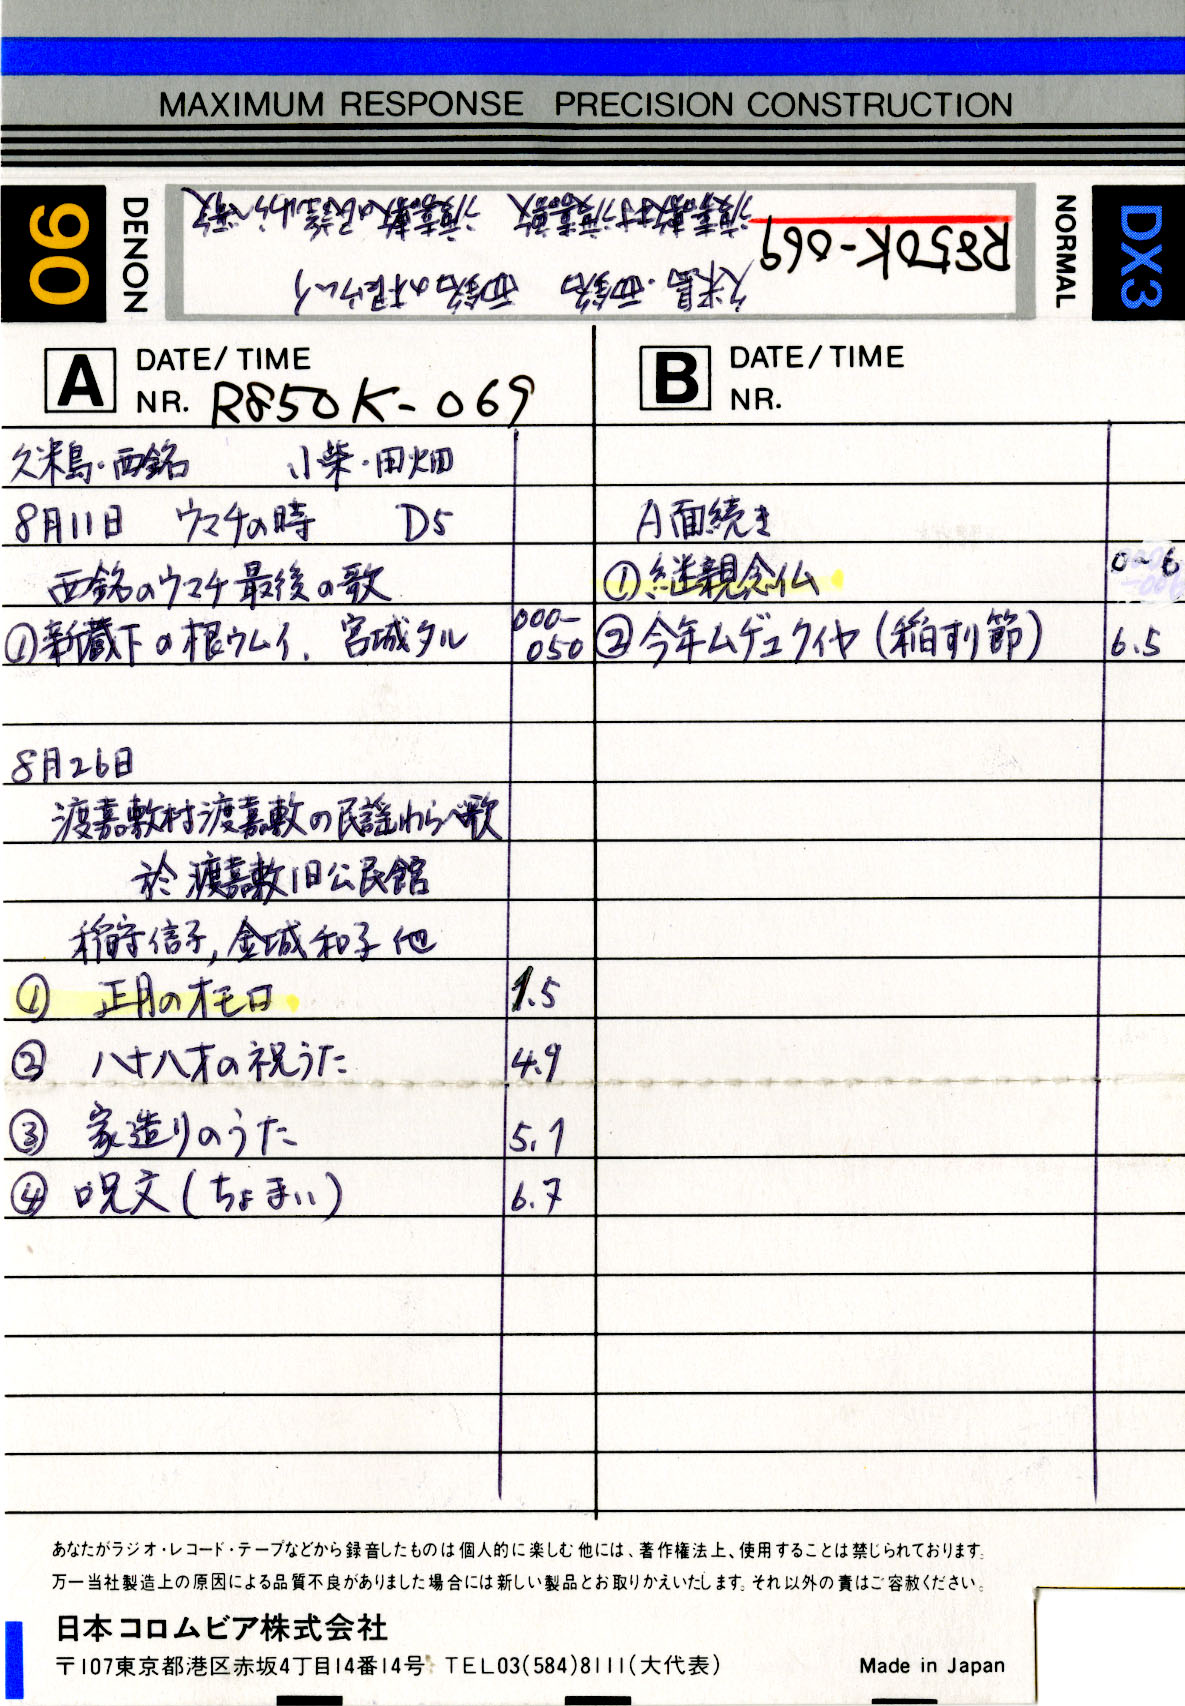 MAXIMUM RESPONSE PRECISION CONSTRUCTION
90
DENON
R850K-069
久米島・西銘 西銘の根ウムイ
渡嘉敷村渡嘉敷 渡嘉敷の民謡わらべ歌
NORMAL
DX3
A DATE/TIME
NR. R850K-069
久米島・西銘 小柴・田畑
8月11日 ウマチの時 D5
西銘のウマチ最後の歌
①新蔵下の根ウムイ. 宮城タル 000-050
8月26日
渡嘉敷村渡嘉敷の民謡わらべ歌
於 渡嘉敷旧公民館
稲守信子, 金城和子 他
① 正月のオモロ 1.5
② 八十八才の祝うた 4.9
③ 家造りのうた 5.1
④ 呪文(ちょまい) 6.7
B DATE/TIME
NR.
A面続き
①継親念仏 0~6
②今年ムヂュクイヤ(稲すり節) 6.5
あなたがラジオ・レコード・テープなどから録音したものは個人的に楽しむ他には、著作権法上、使用することは禁じられております。
万一当社製造上の原因による品質不良がありました場合には新しい製品とお取りかえいたします。それ以外の責はご容赦ください。
日本コロムビア株式会社
〒107東京都港区赤坂4丁目14番14号 TEL03(584)8111(大代表) Made in Japan